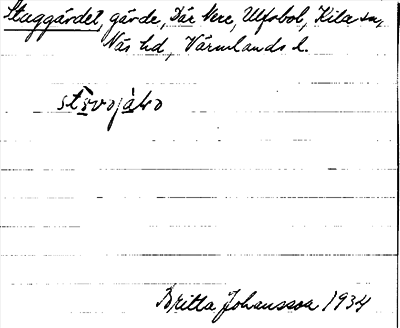 Staggärdet, gärde, Där Nere, Ulfsbol, Kila sn,
Näs hd, Värmlands l.
Britta Johansson 1934